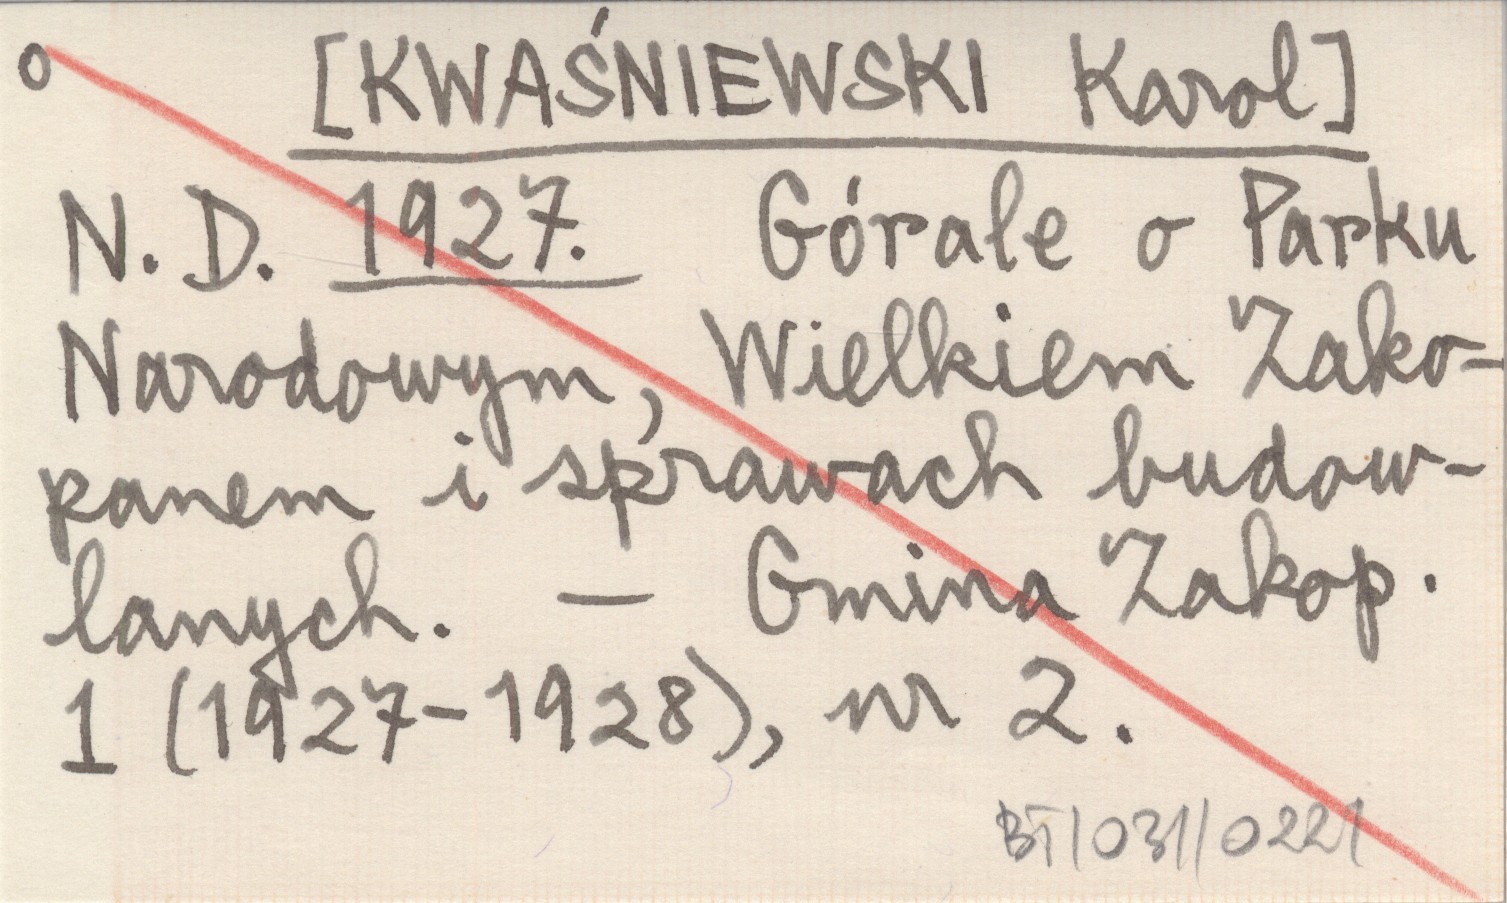 o [KWAŚNIEWSKI Karol]
N. D. 1927. Górale o Parku
Narodowym, Wielkiem Zako-
panem i sprawach budow-
lanych. — Gmina Zakop.
1 (1927-1928), nr 2.
BT/031/0221